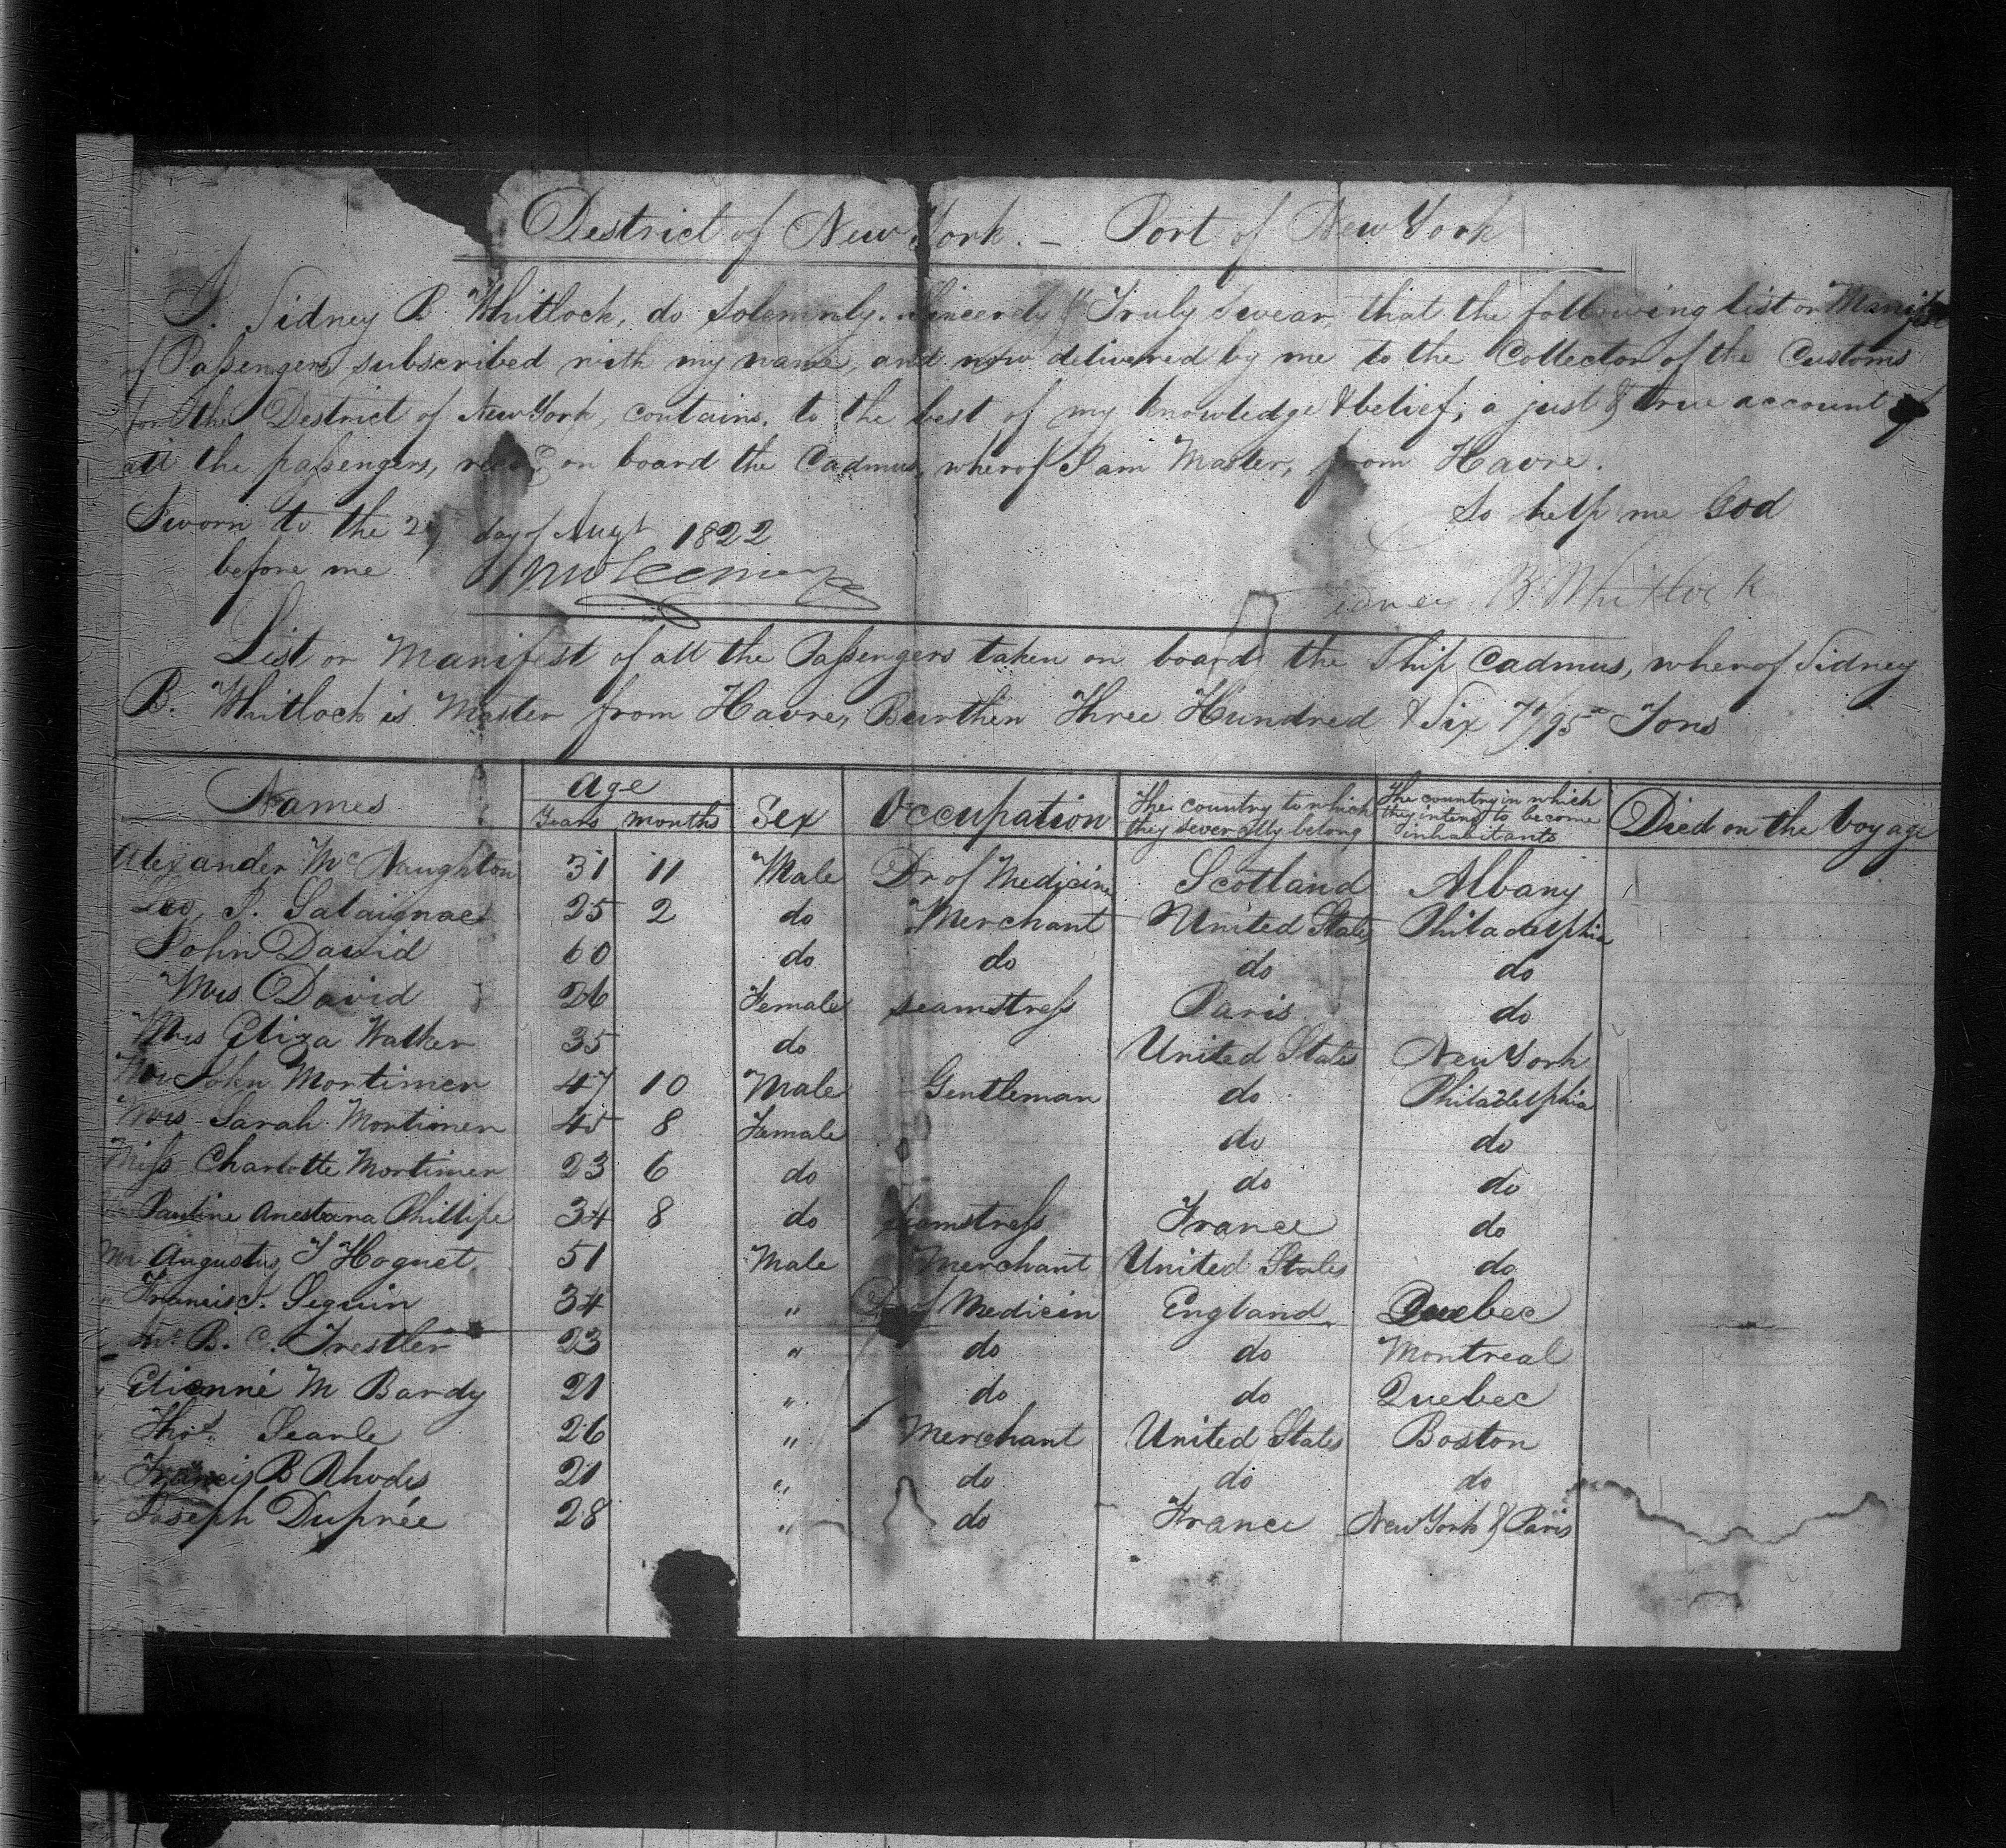 District of New York. – Port of New York
I. Sidney B Whitlock, do Solemnly. Sincerely & Truly Swear, that the following list or Manifest
of Passengers subscribed with my name, and now delivered by me to the Collector of the Customs
for the District of New York, contains, to the best of my knowledge & belief, a just & true account of
all the passengers, on board the Cadmus, wherof I am Master, from Havre.
So help me God
Sworn to the day of Augt 1822
before me
Sidney B Whitlock
List or Manifest of all the Passengers taken on board the Ship Cadmus, wherof Sidney
B. Whitlock is Master from Havre, Burthen Three Hundred & Six 71/95 Tons
Names Age Years months Sex Occupation The country to which they severally belong The country in which they intend to become inhabitants Died on the Voyage
Alexander McNaughton 31 11 Male Dr of Medicine Scotland Albany
P. Salaignac 25 2 do Merchant United States Philadelphia
John David 60 do do do do
Mrs David 26 Female seamstress Paris do
Mrs Eliza Walker 35 do United States New York
Mr John Mortimer 47 10 Male Gentleman do Philadelphia
Mrs Sarah Mortimer 45 8 Female do do
Miss Charlotte Mortimer 23 6 do do do
Pauline Anestana Phillipe 34 8 do seamstress France do
Mr Augustus Hognet 51 Male Merchant United States do
" Francis Seguin 34 " Dr of Medicin England Quebec
" B. C. Trestler 23 " do do Montreal
" Etienne M Bardy 21 " do do Quebec
" Thos. Searle 26 " Merchant United States Boston
" Francis B Rhodes 21 " do do do
" Joseph Duprée 28 " do France New York & Paris